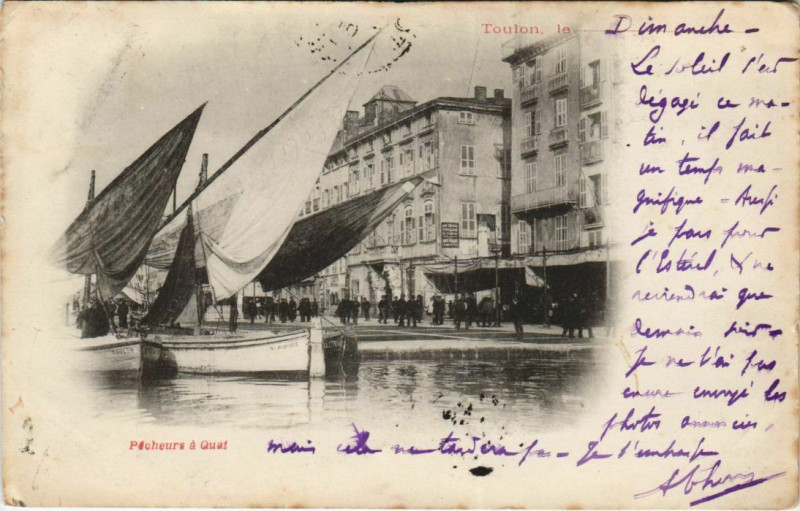 Toulon, le Dimanche -
Le soleil s'est
dégagé ce ma-
tin, il fait
un temps ma-
gnifique - Aussi
je pars pour
l'Estérel, & ne
reviendrai que
demain soir -
Je ne t'ai pas
encore envoyé les
photos annoncées,
mais cela ne tardera pas - Je t'embrasse
Pêcheurs à Quai